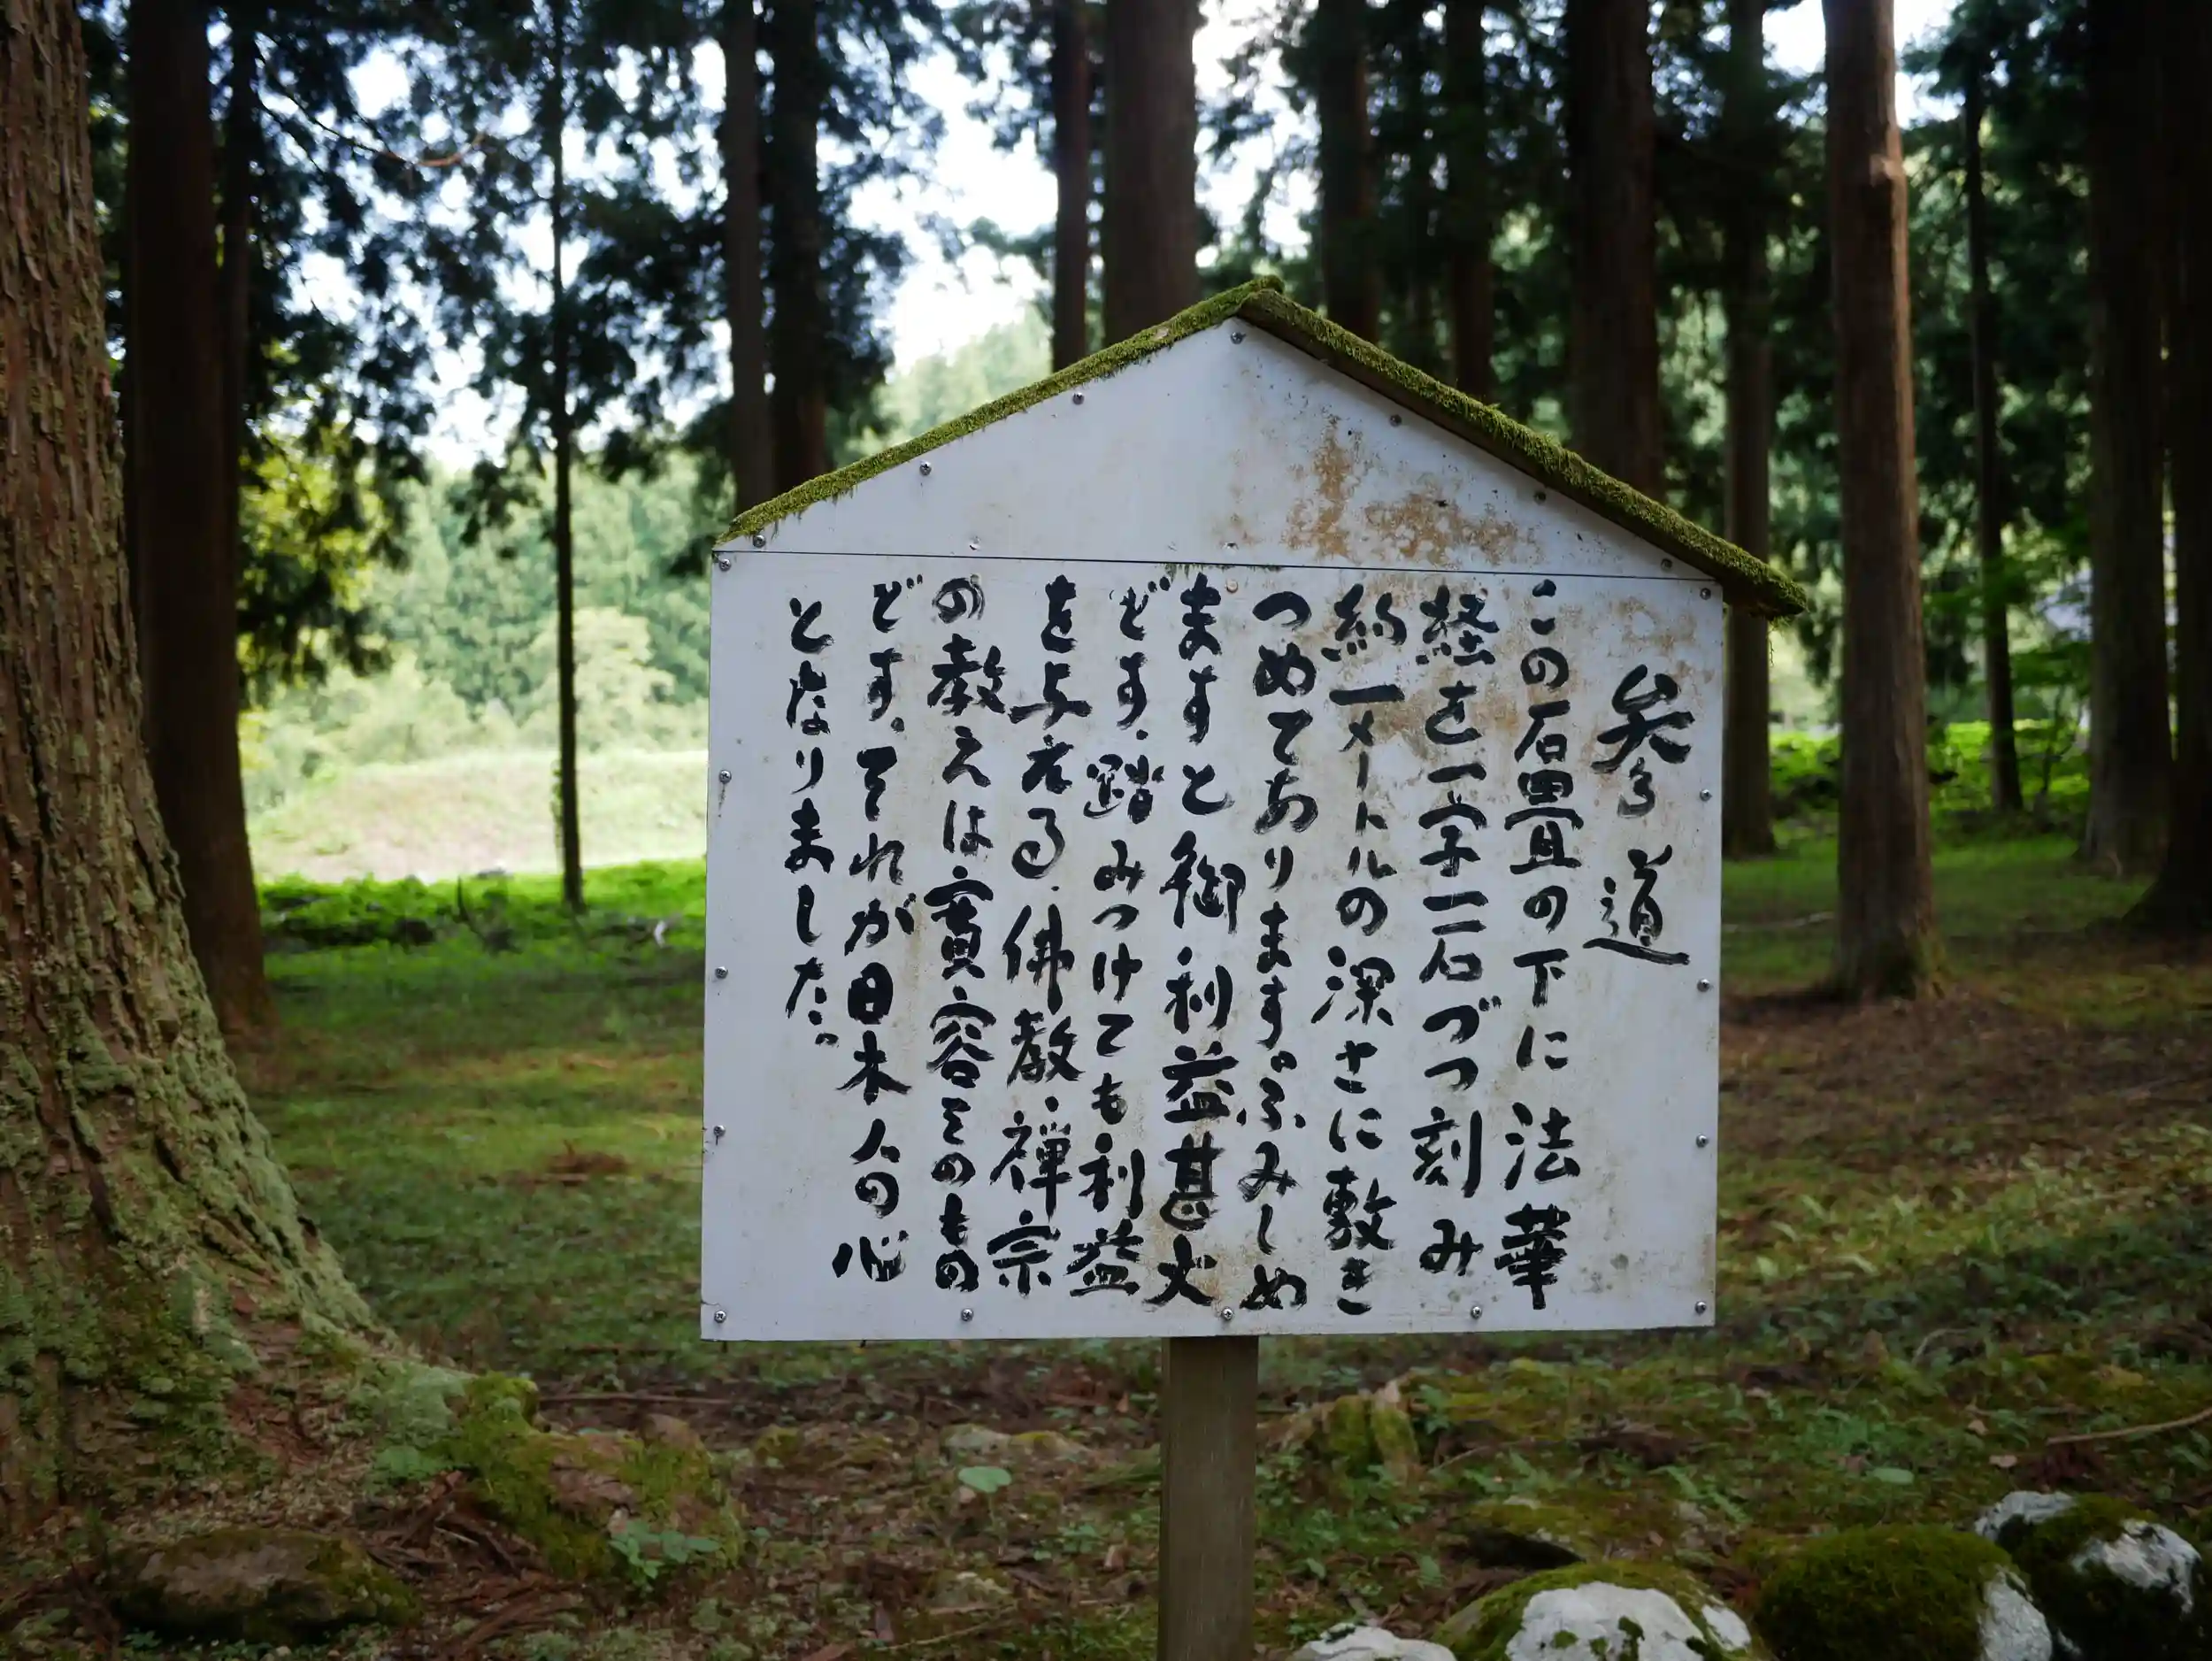 参道
この石畳の下に法華
経を一字一石づつ刻み
約一メートルの深さに敷き
つめてあります。ふみしめ
ますと御利益甚大
どす。踏みつけても利益
を与える。佛教・禅宗
の教えは寛容そのもの
どす。それが日本人の心
となりました。